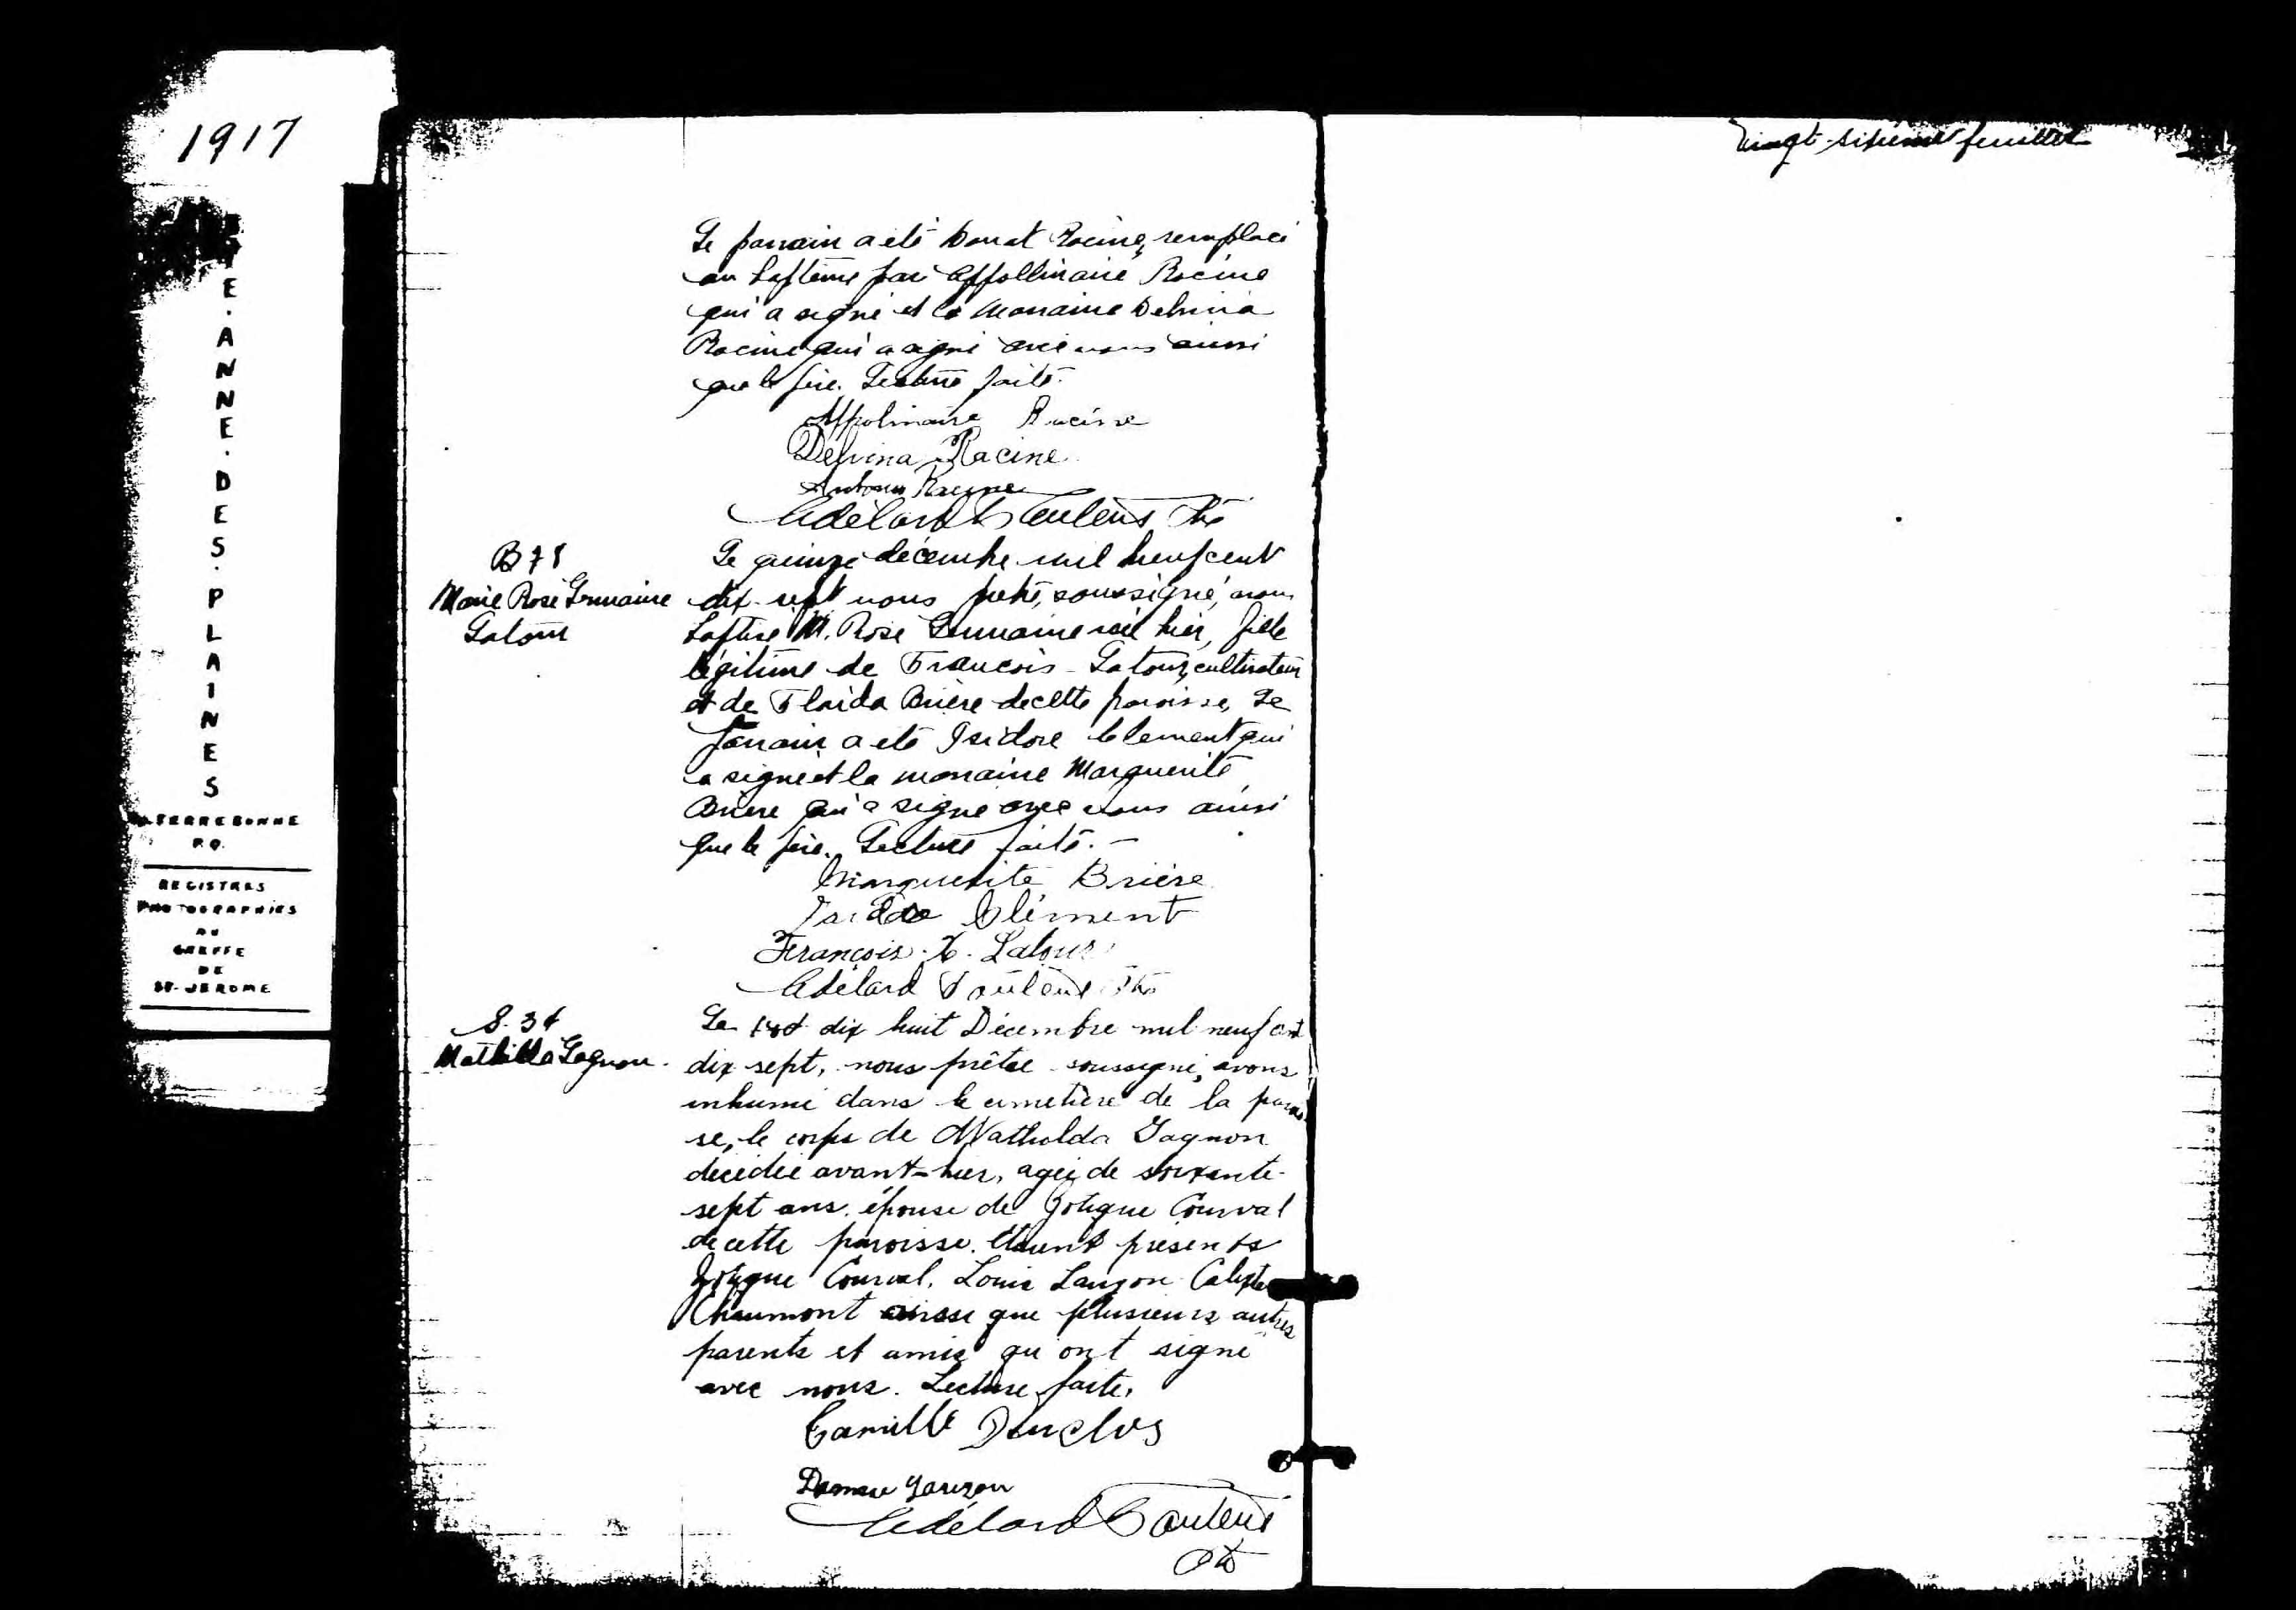 1917
E.ANNE.DES.PLAINES
TERREBONNE
P.Q.
REGISTRES
PHOTOGRAPHIES
AU
GREFFE
DE
ST-JEROME
Vingt-sixième feuillet
Le parrain a été Donat Racine, remplacé
au baptême par Appollinaire Racine
qui a signé et la marraine Delvina
Racine qui a signé avec nous ainsi
que le père. Lecture faite.
Appolinaire Racine
Delvina Racine
Racine
Adélard Ptre
B 78
Marie Rose Germaine
Latour
Le quinze décembre mil neuf cent
dix-sept nous prêtre, soussigné, avons
baptisé M. Rose Germaine née hier, fille
légitime de François Latour, cultivateur
et de Flaida Brière de cette paroisse, Le
parrain a été Isidore Clement qui
a signé et la marraine Marguerite
Brière qui a signé avec nous ainsi
que le père. Lecture faite. –
Marguerite Brière
Clément
François. X. Latour
Adélard Ptre
S. 34
Mathilda Gagnon.
Le dix huit Décembre mil neuf cent
dix sept, nous prêtre soussigné, avons
inhumé dans le cimetière de la parois
se, le corps de Matholda Gagnon
décédée avant-hier, agée de soixante-
sept ans. épouse de Zotique Courval
de cette paroisse. Etaient présents
Zotique Courval, Louis Lauzon Calixte
Chaumont ainsi que plusieurs autres
parents et amis qui ont signé
avec nous. Lecture faite.
Camille Duclos
Lauzon
Adélard
Ptre